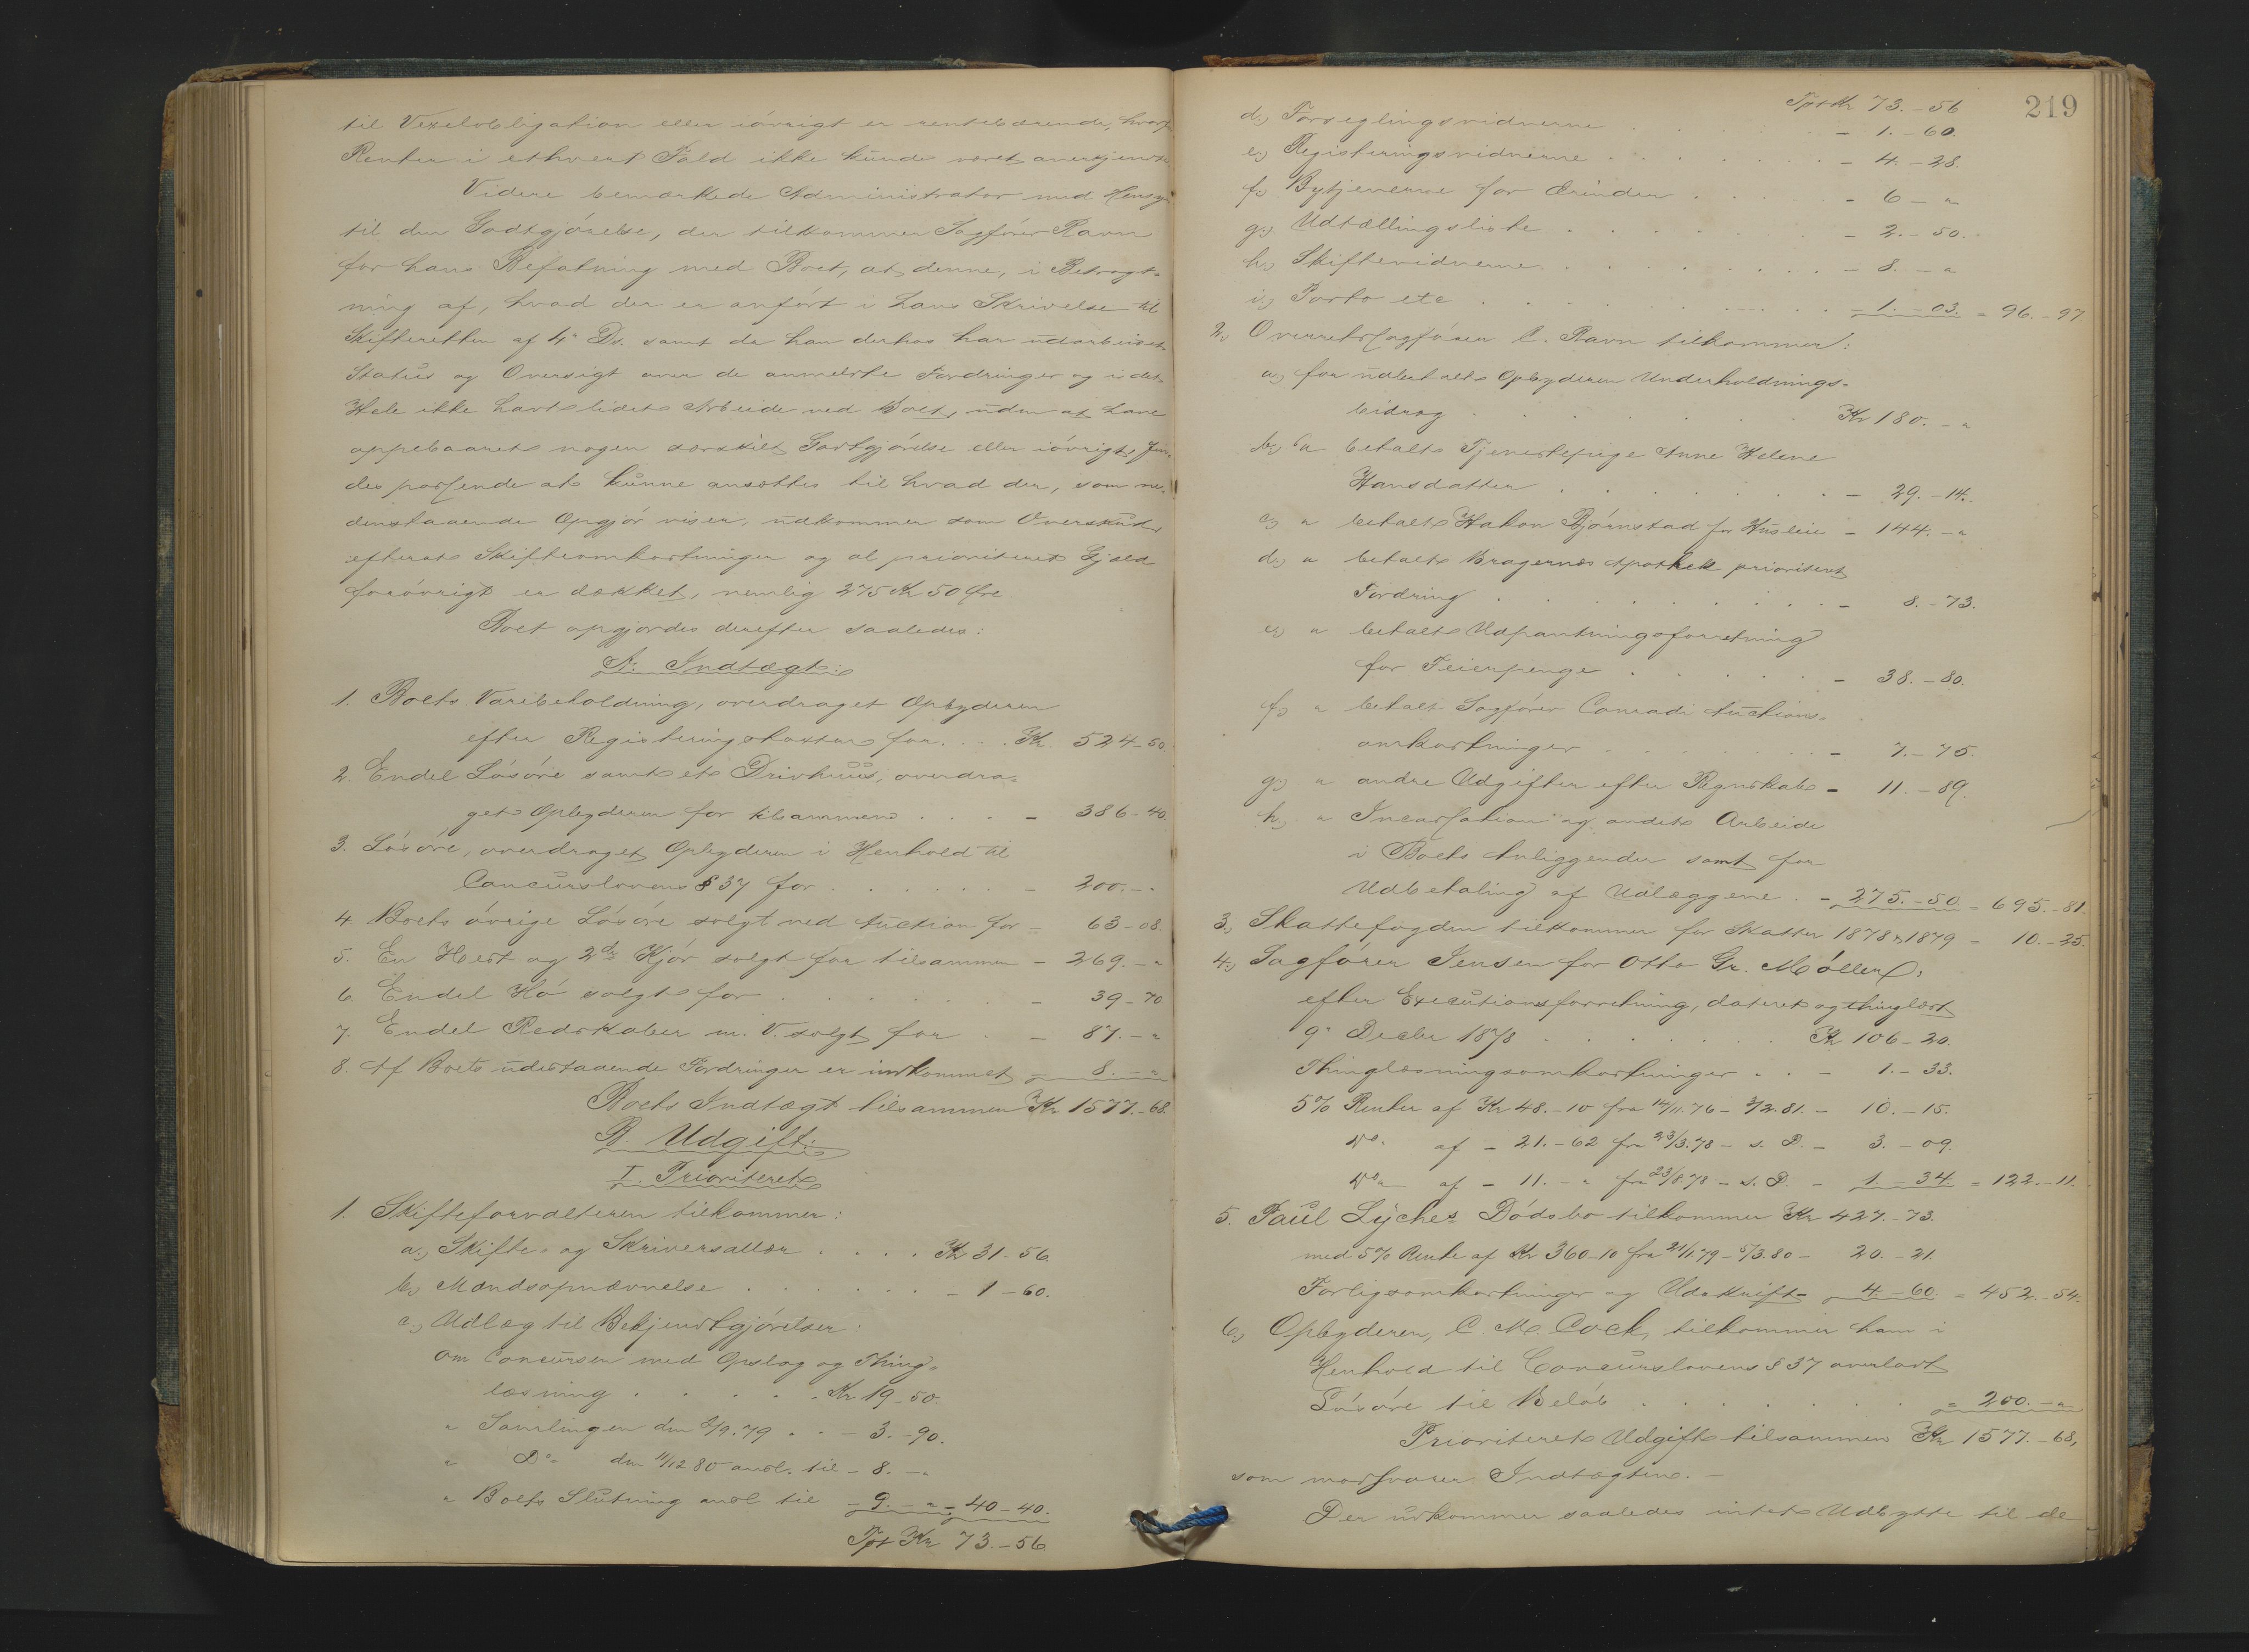 til Vexelobligation eller iøvrigt er rentebærende, hvorfor
Renter i ethvert Fald ikke kunde været anerkjendt.
Videre bemærkede Administrator med Hensyn
til den Godtgjørelse, der tilkommer Sagfører Ravn
for hans Befatning med Boet, at denne, i Betragt-
ning af, hvad der er anført i hans Skrivelse til
Skifteretten af 4de Ds. samt da han derhos har udarbeidet
Status og Oversigt over de anmeldte Fordringer og i det
Hele ikke havt lidet Arbeide ved Boet, uden at have
oppebaaret nogen særskilt Godtgjørelse eller iøvrigt, fin-
des passende at kunne ansættes til hvad der, som ne-
denstaaende Opgjør viser, udkommer som Overskud,
efterat Skifteomkostninger og al prioriteret Gjæld
forøvrigt er dækket, nemlig 275 Kr 50 Øre.
Boet opgjordes derefter saaledes:
A. Indtægt:
1. Boets Varebeholdning, overdraget Opbyderen
efter Registeringstaxten for . . . Kr. 524-50
2. Endel Løsøre samt et Drivhuus, overdra-
get Opbyderen for tilsammen . . . . - 386-40.
3. Løsøre, overdraget Opbyderen i Henhold til
Concurslovens § 37 for . . . . . . - 200.-"
4. Boets øvrige Løsøre solgt ved Auction for - 63-08.
5. En Hest og 2de Kjør solgt for tilsammen - 269.-"
6. Endel Hø solgt for . . . . . . . - 39-70
7. Endel Redskaber m. V. solgt for . - 87.-"
8. Af Boets udestaaende Fordringer er indkommet - 8.-"
Boets Indtægt tilsammen Kr 1577.-68.
B. Udgift:
I. Prioriteret
1. Skifteforvalteren tilkommer:
a.) Skifte- og Skriversallær . . . . Kr 31-56.
b.) Mandsopnævnelse . . . . . . - 1-60.
c.) Udlæg til Bekjendtgjørelser:
om Concursen med Opslag og Thing-
læsning . . . . . Kr 19-50.
" Samlingen den 2/9.79 . . - 3.-90.
" Do den 11/12 80 ansl. til - 8.-"
" Boets Slutning ansl til - 9.-" - 40-40.
Tpt Kr 73.-56
219
Tpt Kr 73.-56
d.) Forseglingsvidnerne . . . . . . - 1.-60.
e.) Registeringsvidnerne . . . . . . - 4.-28.
f.) Bytjenerne for Ærinder . . . . . - 6-"
g.) Udtællingsliste . . . . . . - 2.-50.
h.) Skiftevidnerne . . . . . . . - 8.-"
i.) Porto etc . . . . . . . - 1.-03. = 96.-97
2.) Overretssagfører C. Ravn tilkommer:
a.) for udbetalt Opbyderen Underholdnings-
bidrag . . . . . . Kr 180.-"
b.) " betalt Tjenestepige Anne Helene
Hansdatter . . . . . . . - 29.-14.
c.) " betalt Hakon Bjørnstad for Husleie - 144.-"
d.) " betalt Bragernæs Apothek prioriteret
Fordring . . . . . . . . - 8.-73.
e.) " betalt Udpantningsforretning
for Feierpenge . . . . . . - 38.-80.
f.) " betalt Sagfører Conradi Auctions-
omkostninger . . . . . . . - 7.-75.
g.) " andre Udgifter efter Regnskab - 11.-89.
h.) " Incassation og andet Arbeide
i Boets Anliggender samt for
Udbetaling af Udlæggene . - 275.-50 = 695.-81.
3.) Skattefogden tilkommer for Skatter 1878 & 1879 = 10.-25.
4.) Sagfører Jensen for Otto Gr. Møller:
efter Executionsforretning, dateret og thinglæst
9de Decbr 1878 . . . . . . Kr 106-20.
Thinglæsningsomkostninger . . - 1.-33.
5% Renter af Kr 48.-10 fra 14/11.76 - 3/2.81. - 10.-15.
Do. af - 21.-62 fra 23/3.78 - s. D. - 3.-09.
Do af - 11.-" fra 23/8.78 - s. D. - 1.-34. = 122.-11.
5. Paul Lyches Dødsbo tilkommer Kr 427.-73.
med 5% Rente af Kr 360-10 fra 21/1.79 - 5/3.80 - 20.-21.
Forligsomkostninger og Udskrift - 4.-60. = 452.-54.
6.) Opbyderen, C. M. Cock, tilkommer ham i
Henhold til Concurslovens § 37 overladt
Løsøre til Beløb . . . . . . . = 200.-"
Prioriteret Udgift tilsammen Kr 1577.-68,
som modsvarer Indtægten. -
Der udkommer saaledes intet Udbytte til de